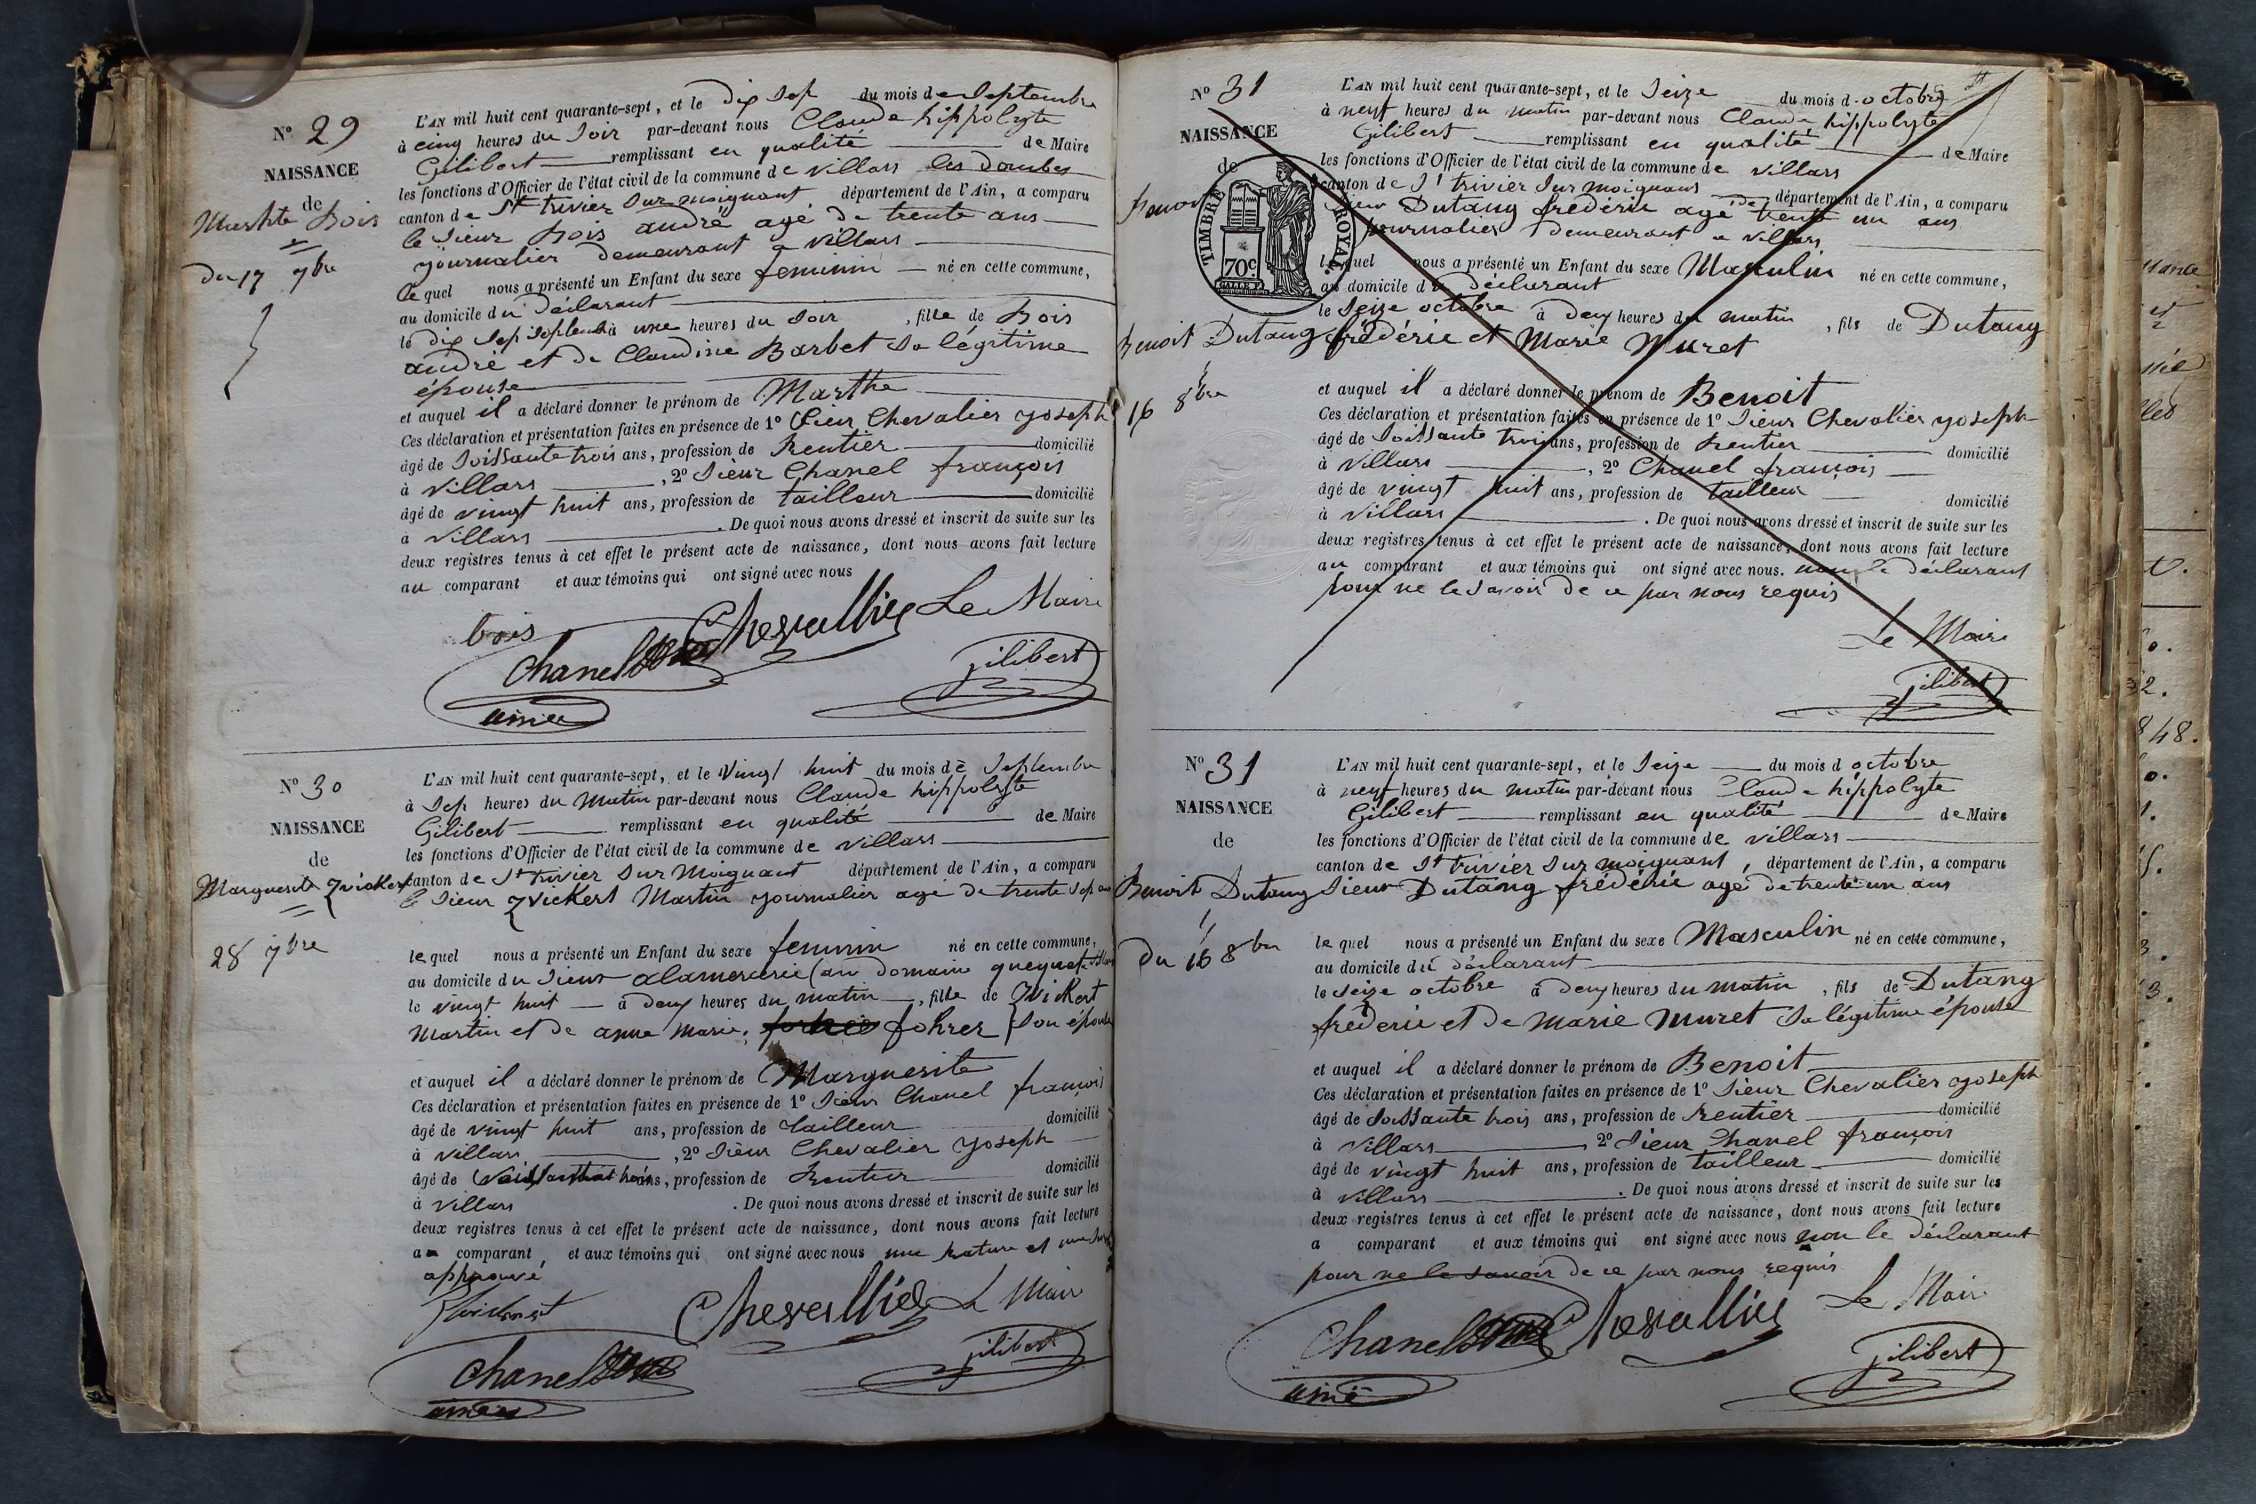 N° 29
NAISSANCE
de
Marthe Bois
du 17 7bre
L'AN mil huit cent quarante-sept, et le dix sep du mois de Septembre
à cinq heures du Soir par-devant nous Claude hippolyte
Gilibert remplissant en qualité de Maire
les fonctions d'Officier de l'état civil de la commune de villars les Dombes
canton de St trivier sur moignant département de l'Ain, a comparu
le Sieur Bois andré agé de trente ans
journalier demeurant a villars
le quel nous a présenté un Enfant du sexe feminin né en cette commune,
au domicile du déclarant
le dix sep septembre à une heures du Soir, fille de Bois
andré et de Claudine Barbet sa légitime
épouse
et auquel il a déclaré donner le prénom de Marthe
Ces déclaration et présentation faites en présence de 1° Sieur Chevalier yoseph
âgé de Soissante trois ans, profession de Rentier domicilié
à villars, 2° Sieur Chanel françois
âgé de vingt huit ans, profession de tailleur domicilié
à villars. De quoi nous avons dressé et inscrit de suite sur les
deux registres tenus à cet effet le présent acte de naissance, dont nous avons fait lecture
au comparant et aux témoins qui ont signé avec nous
bois Chevallier Le Maire
Chanel Gilibert
ainé
N° 30
NAISSANCE
de
Marguerite Zvickert
28 7bre
L'AN mil huit cent quarante-sept, et le Vingt huit du mois de Septembre
à Sep heures du Matin par-devant nous Claude hippolyte
Gilibert remplissant en qualité de Maire
les fonctions d'Officier de l'état civil de la commune de villars
canton de St trivier sur Moignant département de l'Ain, a comparu
le Sieur Zvickert Martin journalier agé de trente sep ans
le quel nous a présenté un Enfant du sexe feminin né en cette commune,
au domicile du Sieur alamercerie (au Domaine
le vingt huit à deux heures du matin, fille de Zvickert
Martin et de anne Marie fohrer son épouse
et auquel il a déclaré donner le prénom de Marguerite
Ces déclaration et présentation faites en présence de 1° Sieur Chanel françois
âgé de vingt huit ans, profession de tailleur domicilié
à villars, 2° Sieur Chevalier yoseph
âgé de Soissante trois ans, profession de Rentier domicilié
à villars. De quoi nous avons dressé et inscrit de suite sur les
deux registres tenus à cet effet le présent acte de naissance, dont nous avons fait lecture
au comparant et aux témoins qui ont signé avec nous une rature et une
approuvé
Chevallier Le Maire
Chanel Gilibert
ainé
N° 31
NAISSANCE
de
TIMBRE ROYAL
70c
Benoit Dutang
16 8bre
L'AN mil huit cent quarante-sept, et le Seize du mois d'octobre
à neuf heures du matin par-devant nous Claude hippolyte
Gilibert remplissant en qualité de Maire
les fonctions d'Officier de l'état civil de la commune de villars
canton de St trivier sur moignans département de l'Ain, a comparu
Sieur Dutang frédéric agé de trente un ans
journalier demeurant a villars
lequel nous a présenté un Enfant du sexe Masculin né en cette commune,
au domicile du déclarant
le Seize octobre à deux heures du matin, fils de Dutang
frédéric et Marie Muret
et auquel il a déclaré donner le prénom de Benoit
Ces déclaration et présentation faites en présence de 1° Sieur Chevalier yoseph
âgé de Soissante trois ans, profession de Rentier domicilié
à villars, 2° Chanel françois
âgé de vingt huit ans, profession de tailleur domicilié
à villars. De quoi nous avons dressé et inscrit de suite sur les
deux registres tenus à cet effet le présent acte de naissance, dont nous avons fait lecture
au comparant et aux témoins qui ont signé avec nous. non le déclarant
pour ne le savoir de ce par nous requis
Le Maire
Gilibert
N° 31
NAISSANCE
de
Benoit Dutang
Du 16 8bre
L'AN mil huit cent quarante-sept, et le Seize du mois d octobre
à neuf heures du matin par-devant nous Claude hippolyte
Gilibert remplissant en qualité de Maire
les fonctions d'Officier de l'état civil de la commune de villars
canton de St trivier sur moignant, département de l'Ain, a comparu
Sieur Dutang frédéric agé de trente un ans
le quel nous a présenté un Enfant du sexe Masculin né en cette commune,
au domicile du déclarant
le Seize octobre à deux heures du matin, fils de Dutang
fréderic et de Marie Muret sa légitime épouse
et auquel il a déclaré donner le prénom de Benoit
Ces déclaration et présentation faites en présence de 1° Sieur Chevalier yoseph
âgé de Soissante trois ans, profession de Rentier domicilié
à villars 2° Sieur Chanel françois
âgé de vingt huit ans, profession de tailleur domicilié
à villars. De quoi nous avons dressé et inscrit de suite sur les
deux registres tenus à cet effet le présent acte de naissance, dont nous avons fait lecture
a comparant et aux témoins qui ont signé avec nous non le déclarant
pour ne le savoir de ce par nous requis
Chanel Chevallier Le Maire
ainé Gilibert